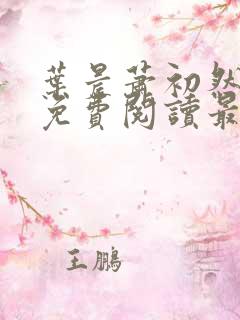 葉景蕭初然
免費閱讀最
王鵬